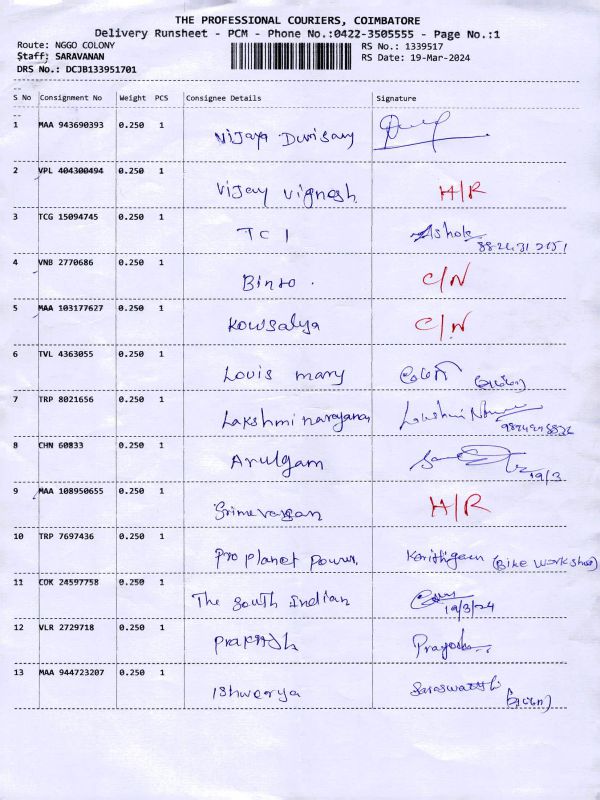 THE PROFESSIONAL COURIERS, COIMBATORE
Delivery Runsheet - PCM - Phone No.:0422-3505555 - Page No.:1
Route: NGGO COLONY RS No.: 1339517
Staff: SARAVANAN RS Date: 19-Mar-2024
DRS No.: DCJB133951701
S No Consignment No Weight PCS Consignee Details Signature
1 MAA 943690393 0.250 1 Vijaya
2 VPL 404300494 0.250 1 Vijay Vignesh H/R
3 TCG 15094745 0.250 1 TCI Ashok
4 VNB 2770686 0.250 1 Binto . C/N
5 MAA 103177627 0.250 1 Kowsalya C/N
6 TVL 4363055 0.250 1 Louis mary
7 TRP 8021656 0.250 1 Lakshmi narayanan Lakshmi
8 CHN 60833 0.250 1 Arulgam 19/3
9 MAA 108950655 0.250 1 H/R
10 TRP 7697436 0.250 1 Pro planet Power. (Bike workshop)
11 COK 24597758 0.250 1 The South Indian
19/3/24
12 VLR 2729718 0.250 1 Prakash
13 MAA 944723207 0.250 1 Ishwarya Saraswathi